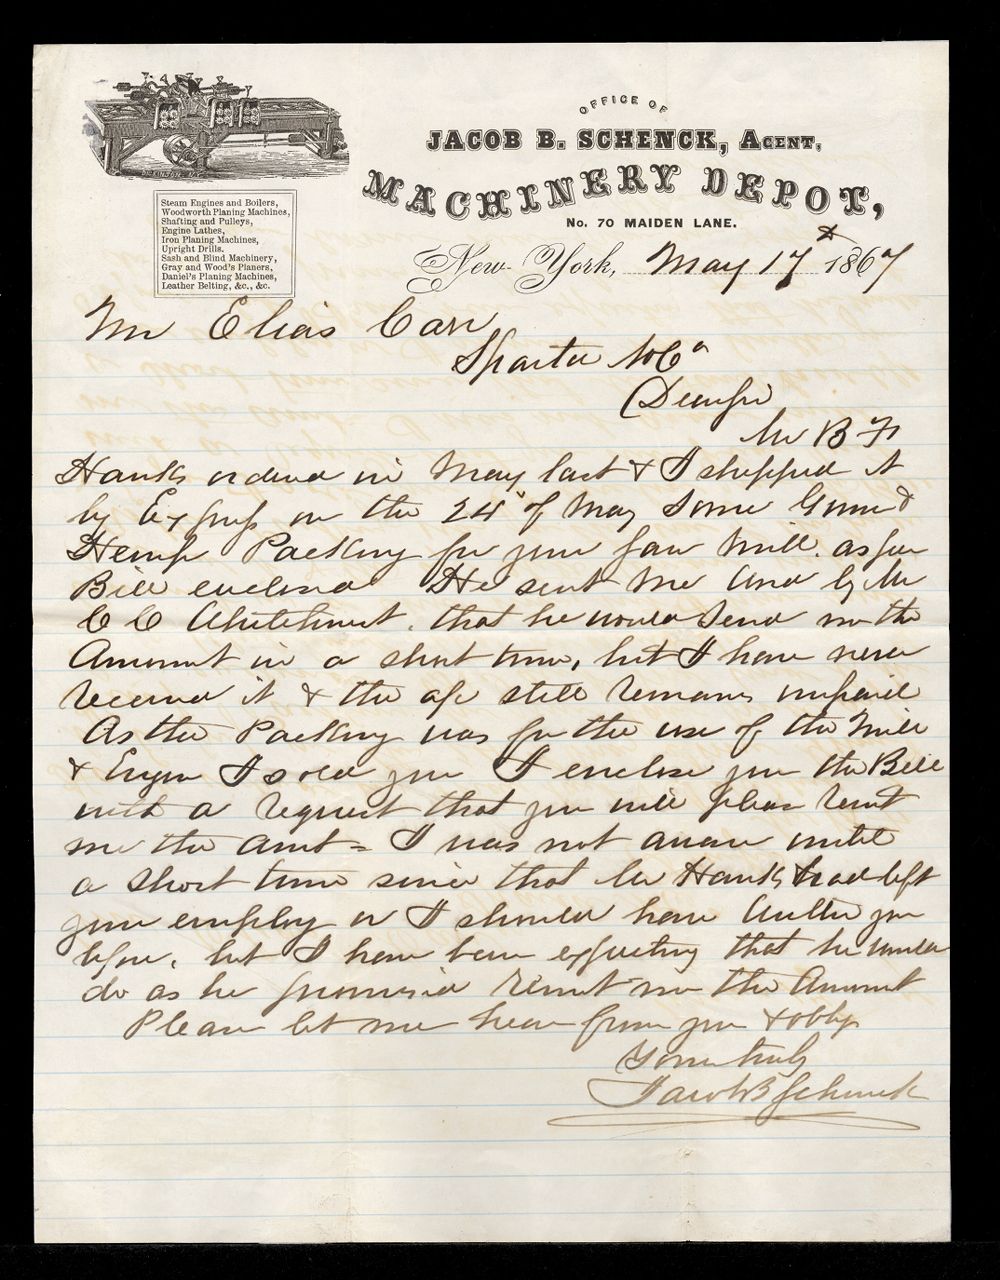 OFFICE OF
JACOB B. SCHENCK, AGENT,
MACHINERY DEPOT,
No. 70 MAIDEN LANE.
New York, May 17 1867
Steam Engines and Boilers,
Woodworth Planing Machines,
Shafting and Pulleys,
Engine Lathes,
Iron Planing Machines,
Upright Drills.
Sash and Blind Machinery,
Gray and Wood's Planers,
Daniel's Planing Machines,
Leather Belting, &c., &c.
Mr Elias Carr
Sparta NCa
Dear Sir
Mr B F
Hanks ordered in May last & I shipped it
by Express on the 24" of May some Gum &
Hemp Packing for your Saw Mill. as per
Bill enclosed He sent me word by Mr
C C Whitehurst. that he would send me the
Amount in a short time, but I have never
received it & the a/c still remains unpaid
As the Packing was for the use of the Mill
& Engine I sold you I enclose you the Bill
with a request that you will please remit
me the amt = I was not aware until
a short time since that Mr Hanks had left
your employ or I should have written you
before. but I have been expecting that he would
do as he promised remit me the Amount
Please let me hear from you & oblige
Yours truly
Jacob B Schenck